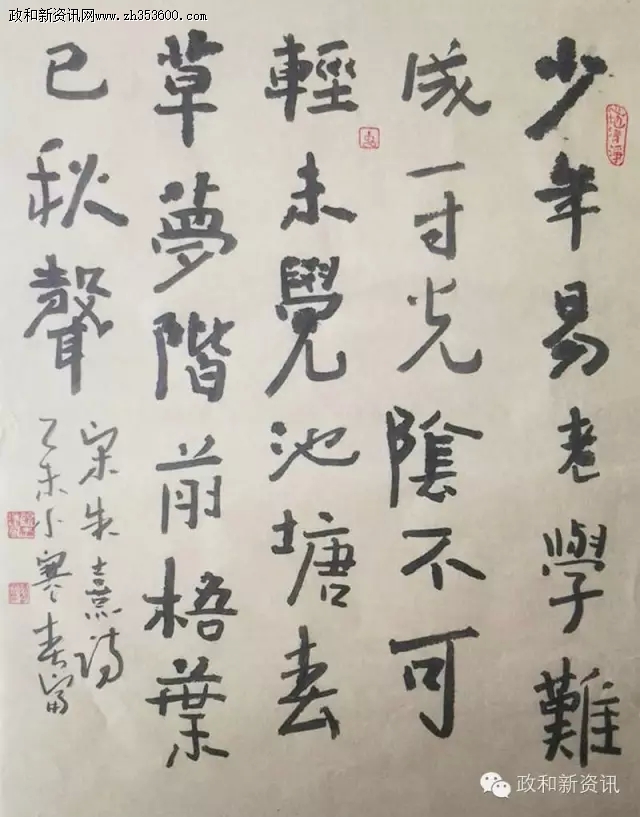 政和新资讯网www.zh353600.com
少年易老學難
成一寸光陰不可
輕未覺池塘春
草夢階前梧葉
已秋聲
宋朱熹詩
乙未小寒春富
政和新资讯